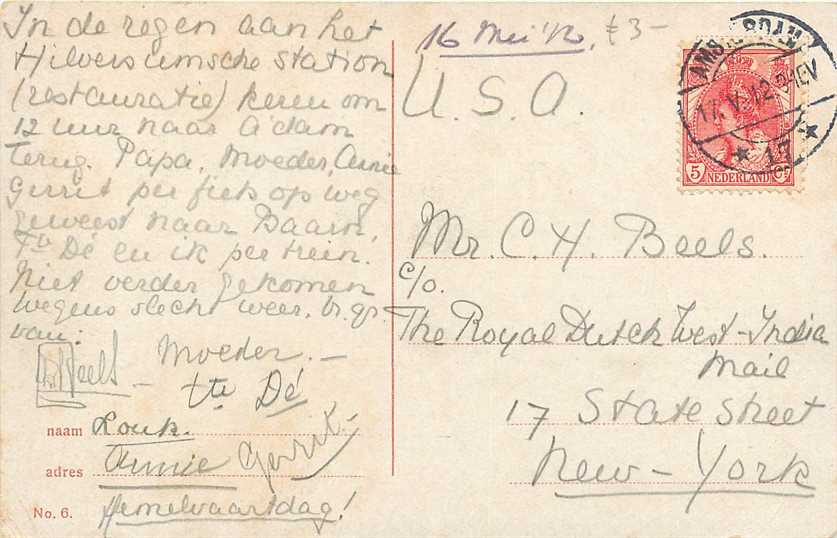 In de regen aan het
Hilversumsche Station
(restauratie) keren om
12 uur naar A'dam
terug. Papa, Moeder, Annie
Gerrit per fiets op weg
geweest naar Baarn,
Te Dé en ik per trein.
Niet verder gekomen
wegens slecht weer. br. gr.
van:
Beels
Moeder.-
tte Dé
naam Louk.
adres Annie Gerrit.-
No. 6. Hemelvaartdag!
16 Mei '12. £ 3-
U.S.A.
AMSTERDAM
17.V.12.
5 NEDERLAND CT
Mr. C. H. Beels.
c/o.
The Royal Dutch West-India
Mail
17 State Street
New-York